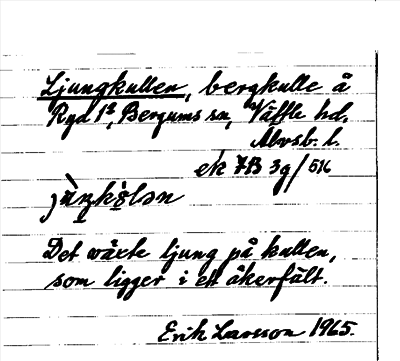 Ljungkullen, bergkulle å
Ryd 1³, Bergums sn, Vättle hd,
Älvsb. l.
ek 7B 3g/516
Det växte ljung på kullen,
som ligger i ett åkerfält.
Erik Larsson 1965.